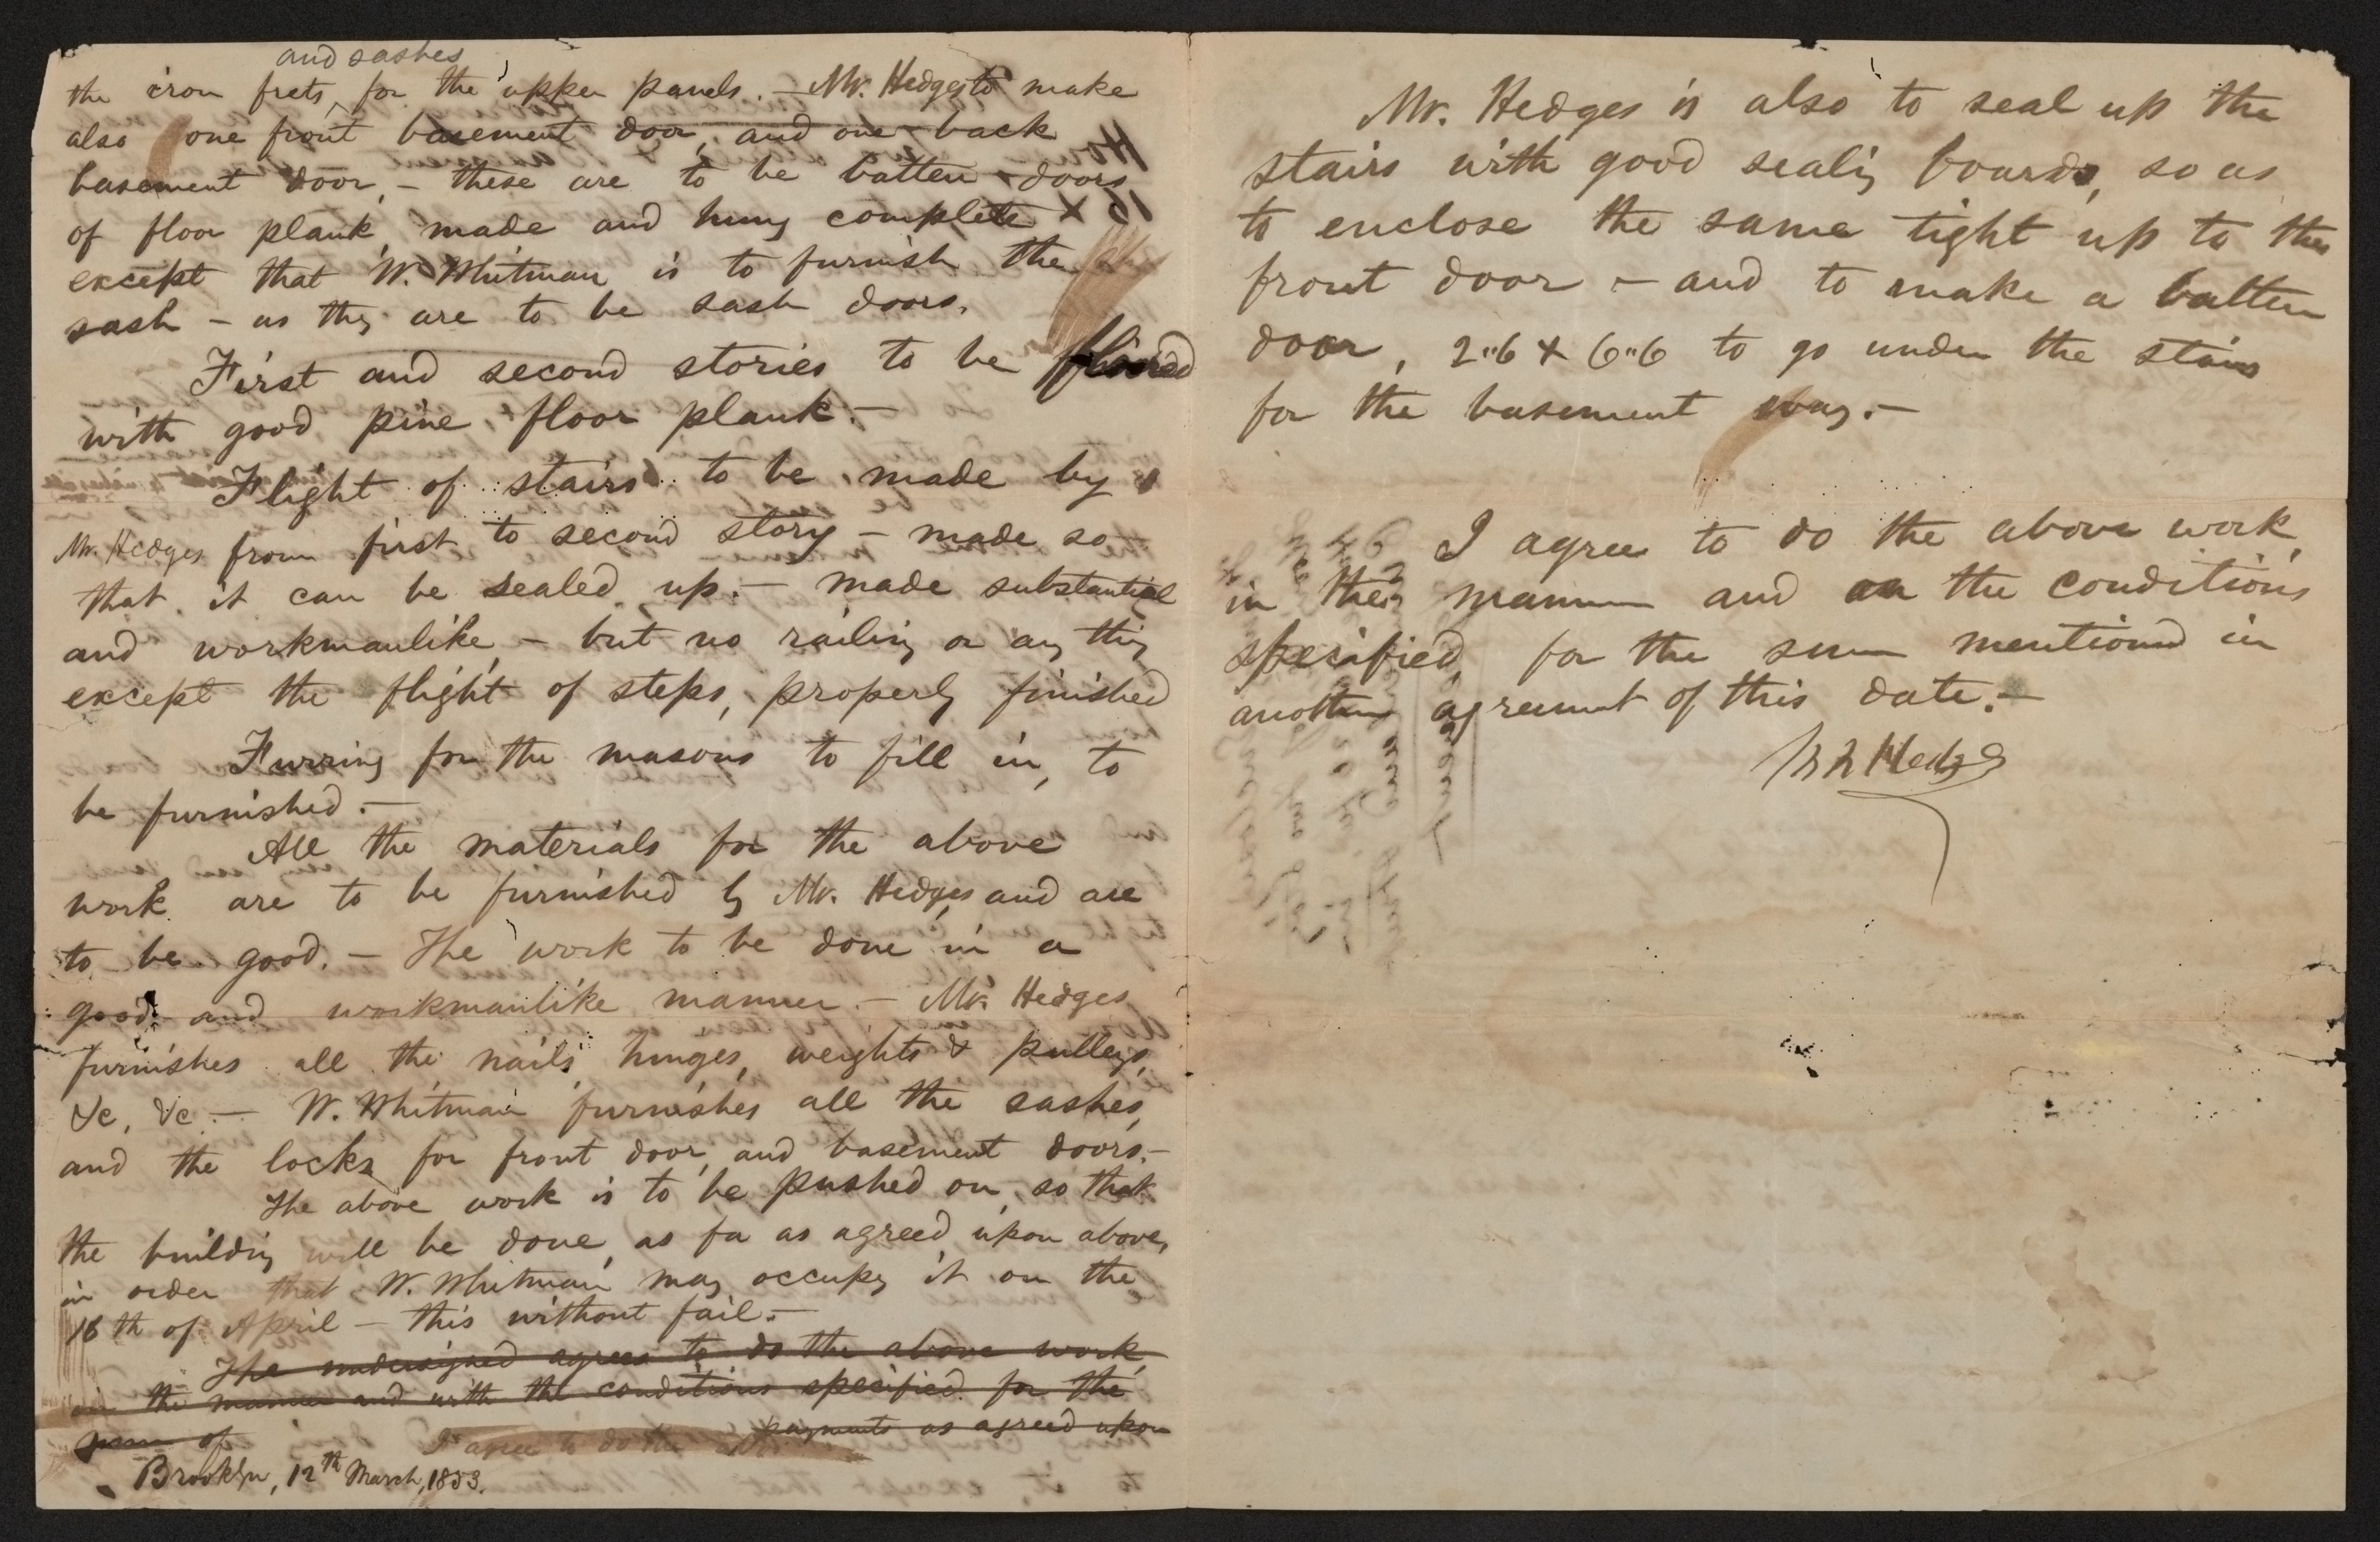 and sashes
the iron frets, for the upper panels. — Mr. Hedges to make
also one front basement door, and one back
basement door, — these are to be batten doors
of floor plank, made and hung complete ×
except that W. Whitman is to furnish the
sash — as they are to be sash doors.
First and second stories to be floored
with good pine floor plank. —
Flight of stairs to be made by
Mr. Hedges from first to second story — made so
that it can be sealed up. — made substantial
and workmanlike, — but no railing or any thing
except the flight of steps, properly finished
Furring for the masons to fill in, to
be furnished. —
All the materials for the above
work are to be furnished by Mr. Hedges and are
to be good. — The work to be done in a
good and workmanlike manner. — Mr. Hedges
furnishes all the nails, hinges, weights & pulleys,
&c, &c. — W. Whitman furnishes all the sashes,
and the locks for front door, and basement doors. —
The above work is to be pushed on, so that
the building will be done, as far as agreed upon above,
in order that W. Whitman may occupy it on the
18th of April — this without fail. —
The undersigned agrees to do the above work,
in the manner and with the conditions specified for the
sum of
payments as agreed upon
I agree to do the
Brooklyn, 12th March, 1853.
Mr. Hedges is also to seal up the
stairs with good sealing boards, so as
to enclose the same tight up to the
front door — and to make a batten
door, 2"6 × 6"6 to go under the stairs
for the basement way. —
I agree to do the above work,
in the manner and on the conditions
specified, for the sum mentioned in
another agreement of this date. —
Hedges